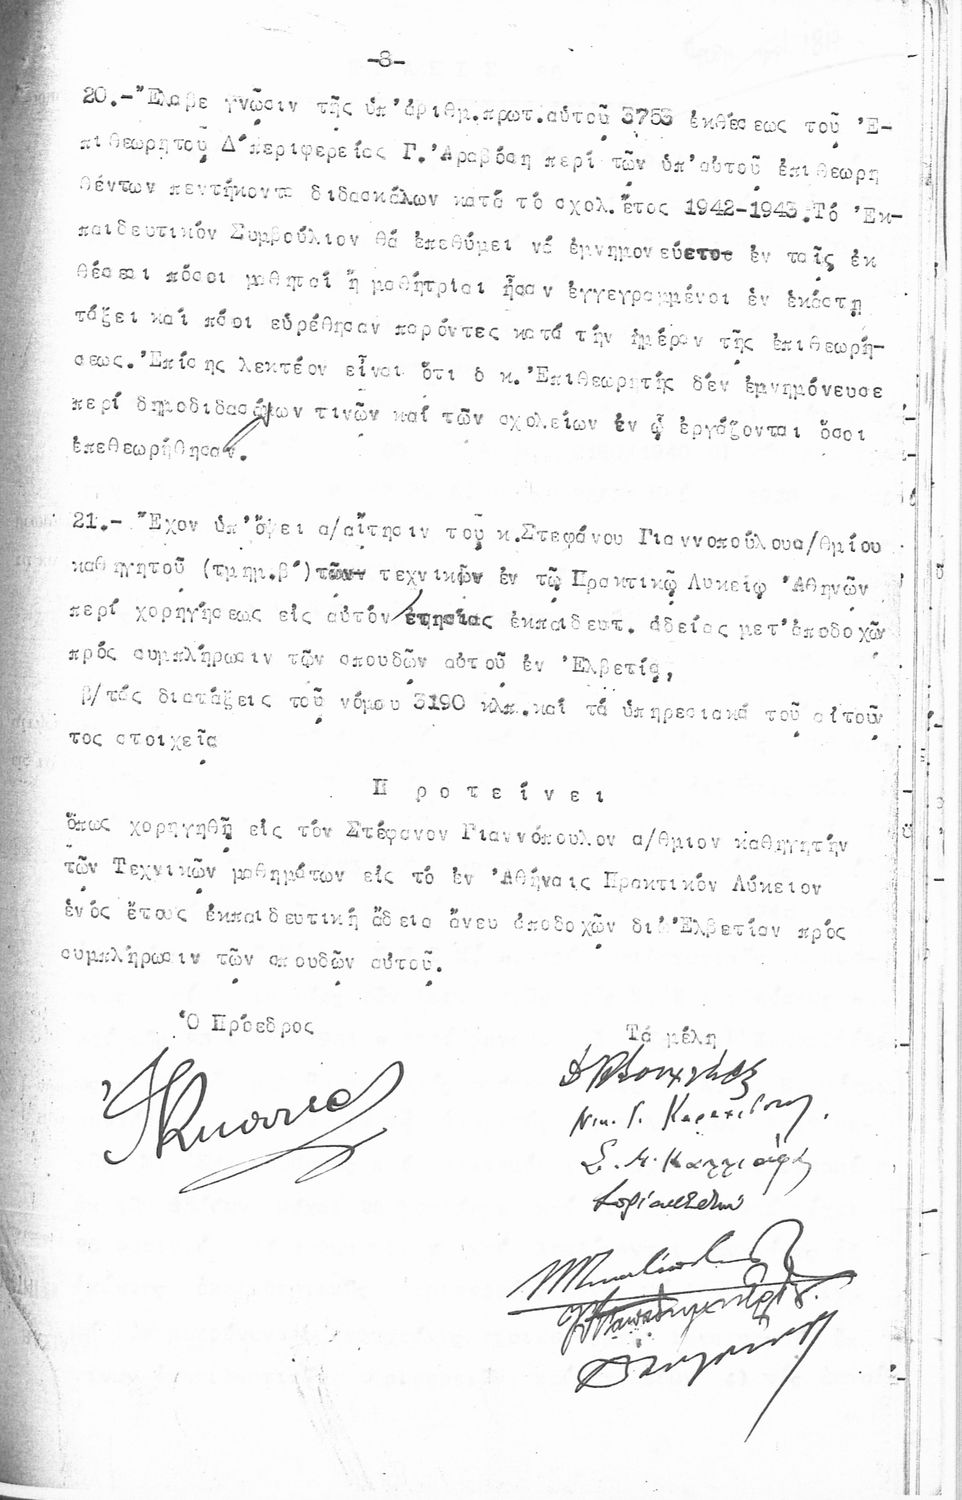 -8-
20.-Ἔλαβε γνῶσιν τῆς ὑπ'ἀριθμ.πρωτ.αὐτοῦ 3753 ἐκθέσεως τοῦ Ἐ-
πιθεωρητοῦ Δ'περιφερείας Γ.Ἀραβόση περί τῶν ὑπ'αὐτοῦ ἐπιθεωρη
θέντων πεντήκοντα διδασκάλων κατά τό σχολ.ἔτος 1942-1943.Τό Ἐκ-
παιδευτικόν Συμβούλιον θά ἐπεθύμει νά ἐμνημονεύετο ἐν ταῖς ἐκ
θέσεσι πόσοι μαθηταί ἤ μαθήτριαι ἦσαν ἐγγεγραμμένοι ἐν ἑκάστῃ
τάξει καί πόσοι εὑρέθησαν παρόντες κατά τήν ἡμέραν τῆς ἐπιθεωρή-
σεως.Ἐπίσης λεκτέον εἶναι ὅτι ὁ κ.Ἐπιθεωρητής δέν ἐμνημόνευσε
περί δημοδιδασκάλων τινῶν καί τῶν σχολείων ἐν ᾧ ἐργάζονται ὅσοι
ἐπεθεωρήθησαν.
21.- Ἔχον ὑπ'ὄψει α/αἴτησιν τοῦ κ.Στεφάνου Γιαννοπούλουα/θμίου
καθηγητοῦ (τμημ.β')τῶν τεχνικῶν ἐν τῷ Πρακτικῷ Λυκείῳ Ἀθηνῶν
περί χορηγήσεως εἰς αὐτόν ἐτησίας ἐκπαιδευτ. ἀδείας μετ'ἀποδοχῶν
πρός συμπλήρωσιν τῶν σπουδῶν αὐτοῦ ἐν Ἐλβετίᾳ,
β/τάς διατάξεις τοῦ νόμου 3190 κλπ.καί τά ὑπηρεσιακά τοῦ αἰτοῦν
τος στοιχεῖα
Π ρ ο τ ε ί ν ε ι
ὅπως χορηγηθῇ εἰς τόν Στέφανον Γιαννόπουλον α/θμιον καθηγητήν
τῶν Τεχνικῶν μαθημάτων εἰς τό ἐν Ἀθήναις Πρακτικόν Λύκειον
ἑνός ἔτους ἐκπαιδευτική ἄδεια ἄνευ ἀποδοχῶν δι'Ἐλβετίαν πρός
συμπλήρωσιν τῶν σπουδῶν αὐτοῦ.
Ὁ Πρόεδρος
Τά μέλη